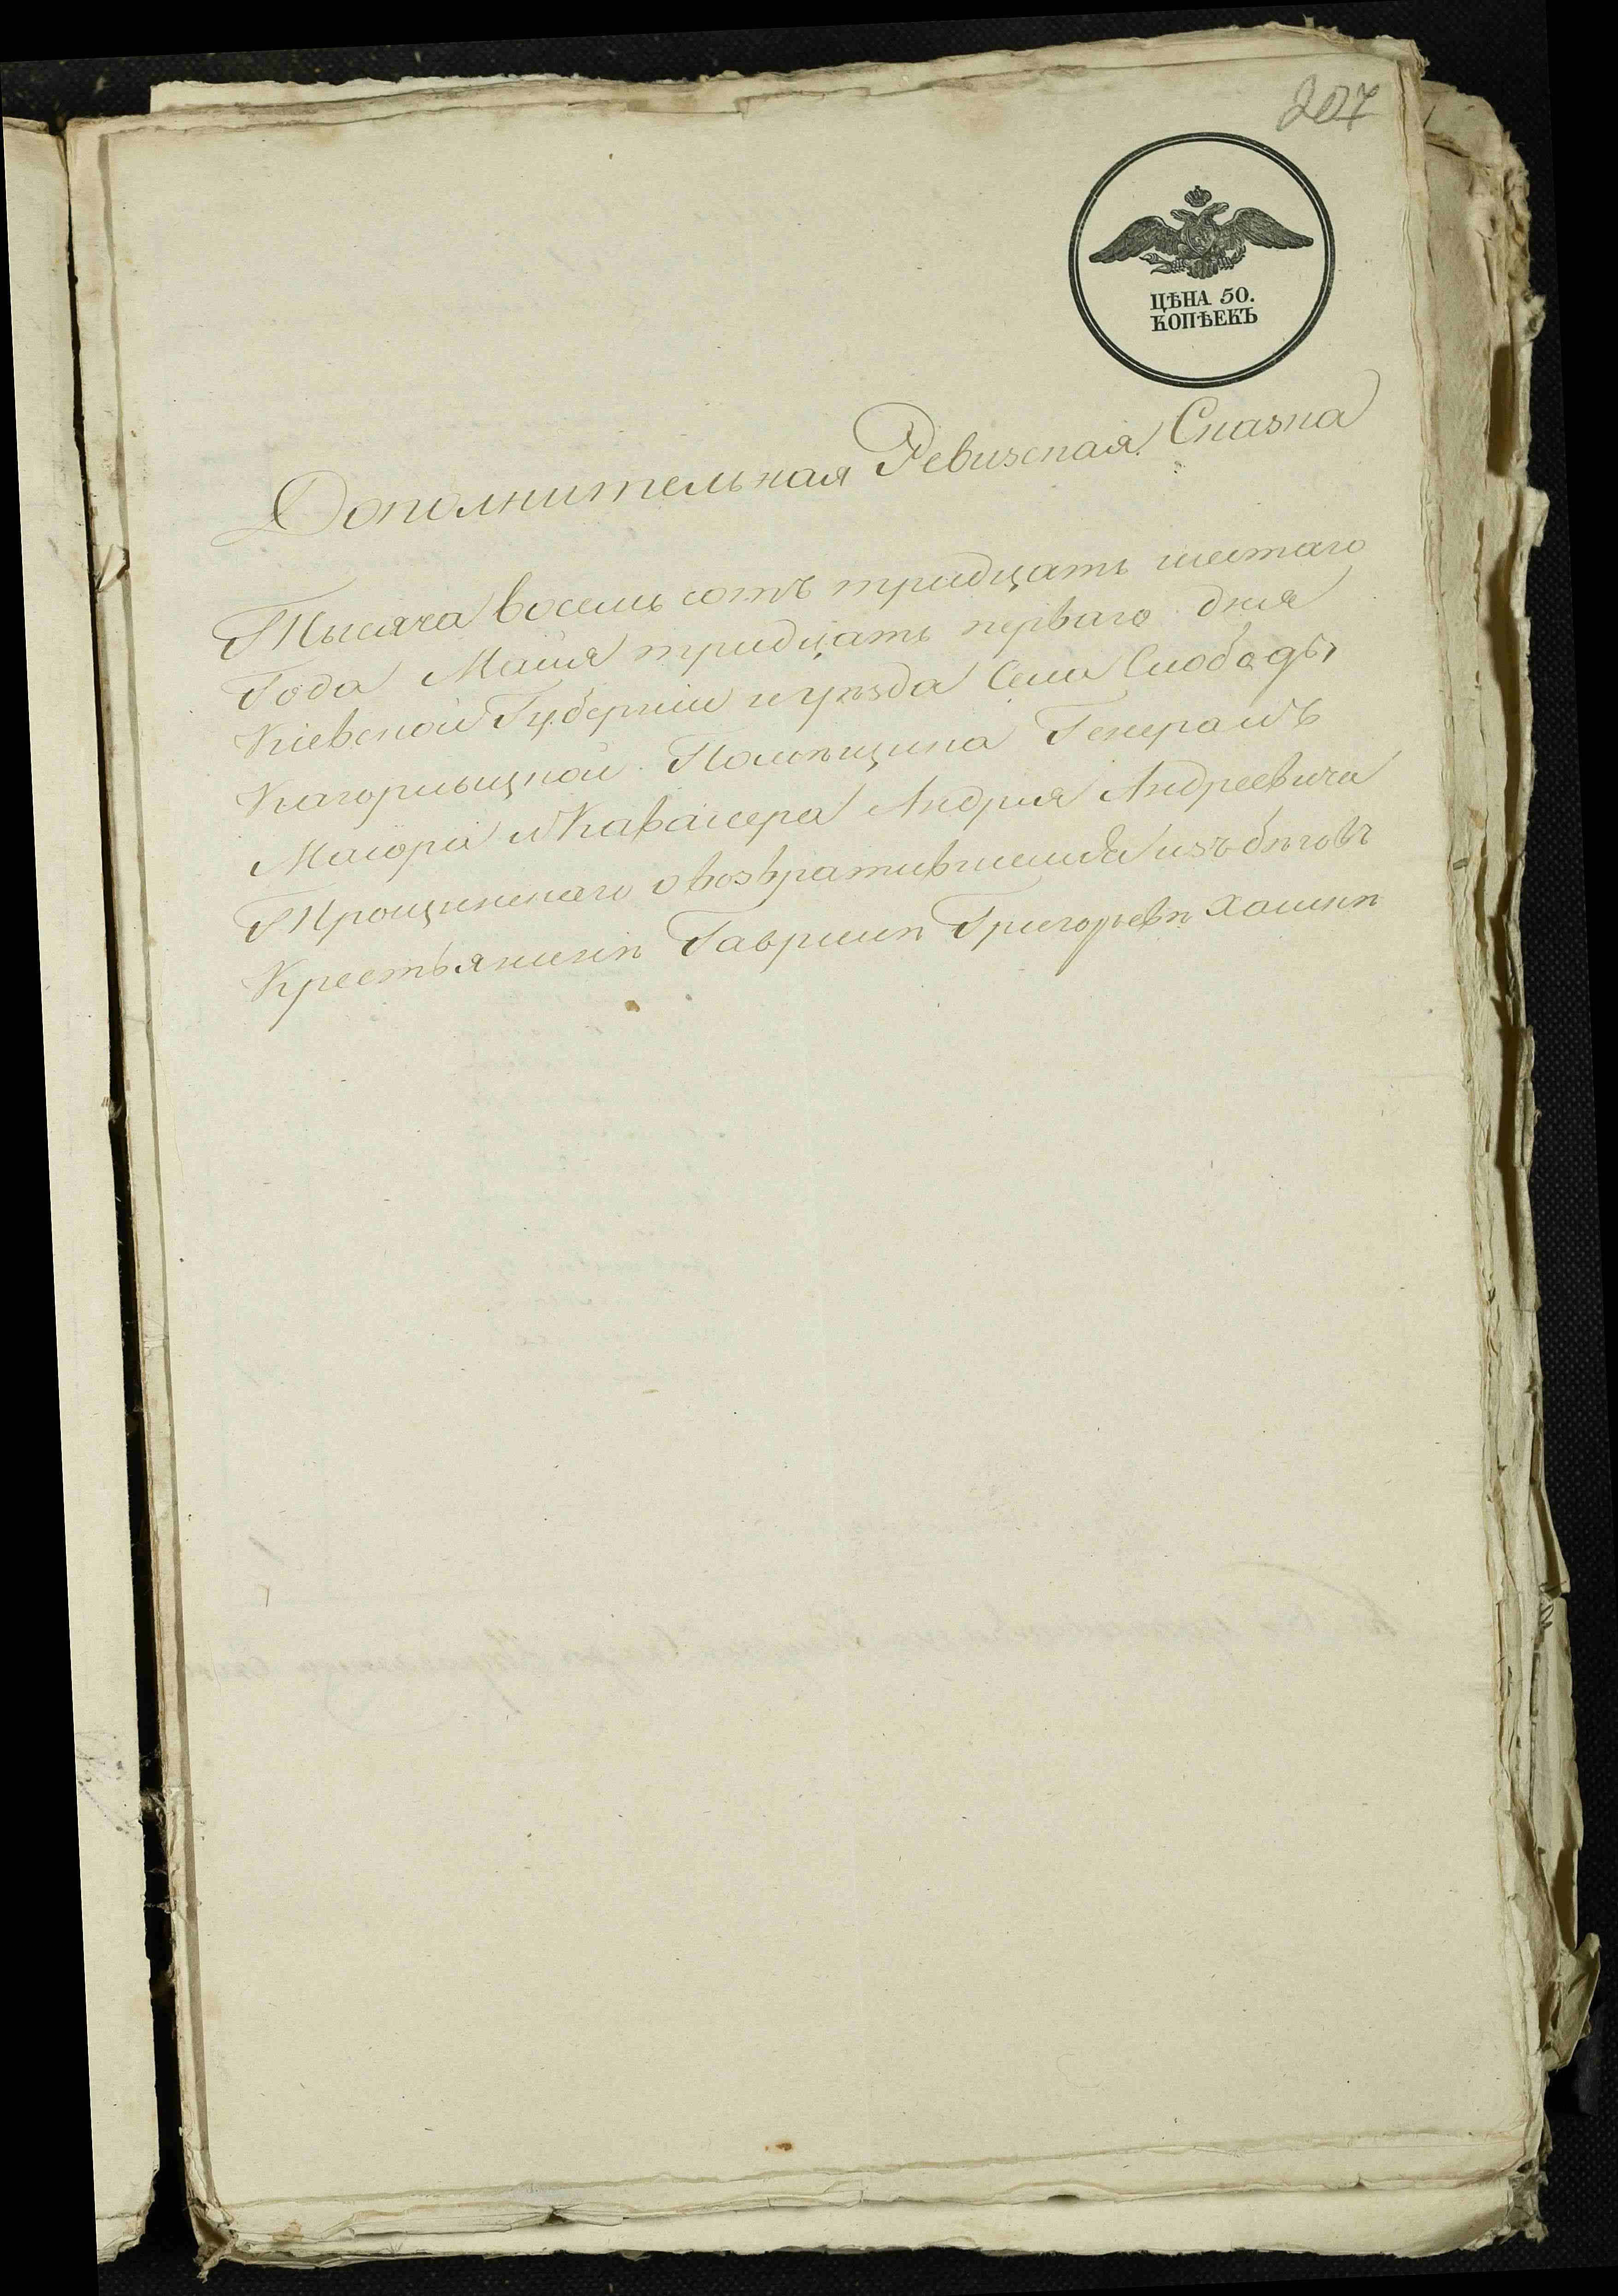 207
ЦѢНА 50.
КОПѢЕКЪ
Дополнительная Ревизская Сказка
Тысяча восемь сотъ тридцать шестаго
Года Маія тридцать перваго дня
Кіевской Губерніи и уѣзда Села Слободы
Кагорлыцкой Помѣщика Генералъ
Маіора и Кавалера Андрея Андреевича
Трощинскаго о возвратившемся изъ бѣговъ
Крестьянинѣ Гаврилѣ Григорьевѣ